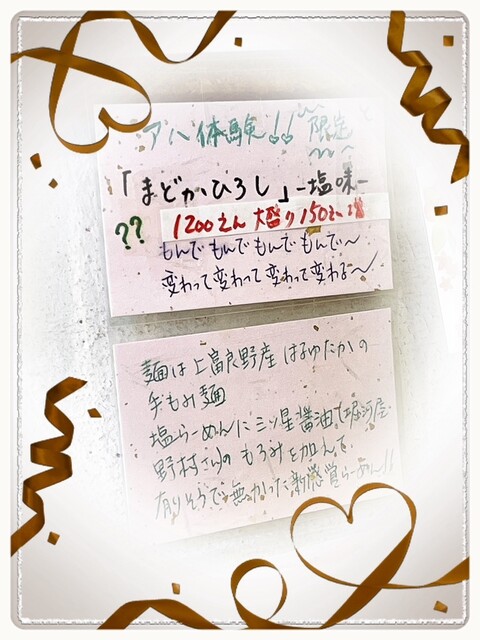 アハ体験!! 限定
「まどかひろし」-塩味-
??
1200えん 大盛り150えん増
もんでもんでもんでもんで〜
変わって変わって変わって変わる〜
麺は上富良野産 はるゆたかの
手もみ麺
塩らーめんに三ツ星醤油 堀河屋
野村さんのもろみを加えて
有りそうで無かった新感覚らーめん!!